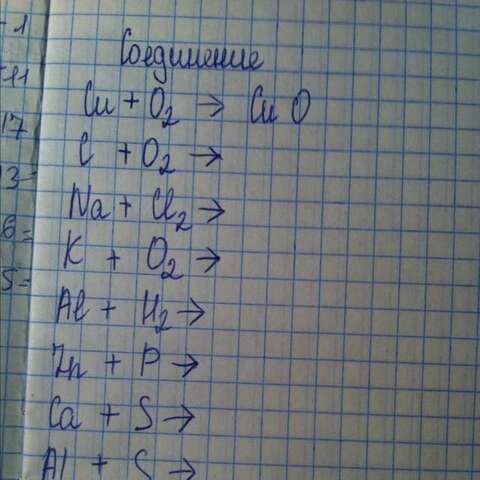 Соединение
Cu + O2 → CuO
C + O2 →
Na + Cl2 →
K + O2 →
Al + H2 →
Zn + P →
Ca + S →
Al + S →